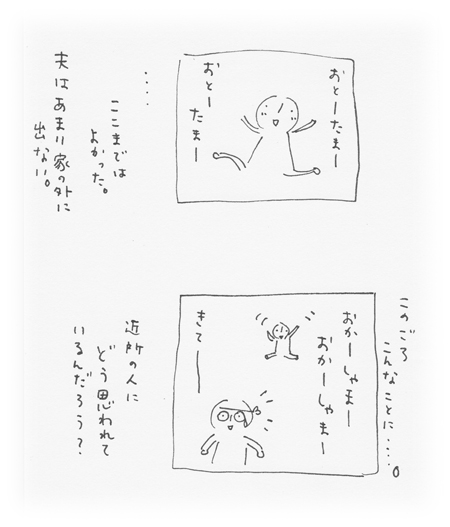 おとーたまー
おとーたまー
・・・・
ここまでは
よかった。
夫はあまり家の外に
出ない。
このごろ
こんなことに・・・・。
おかーしゃまー
おかーしゃまー
きてーーー
近所の人に
どう思われて
いるんだろう？